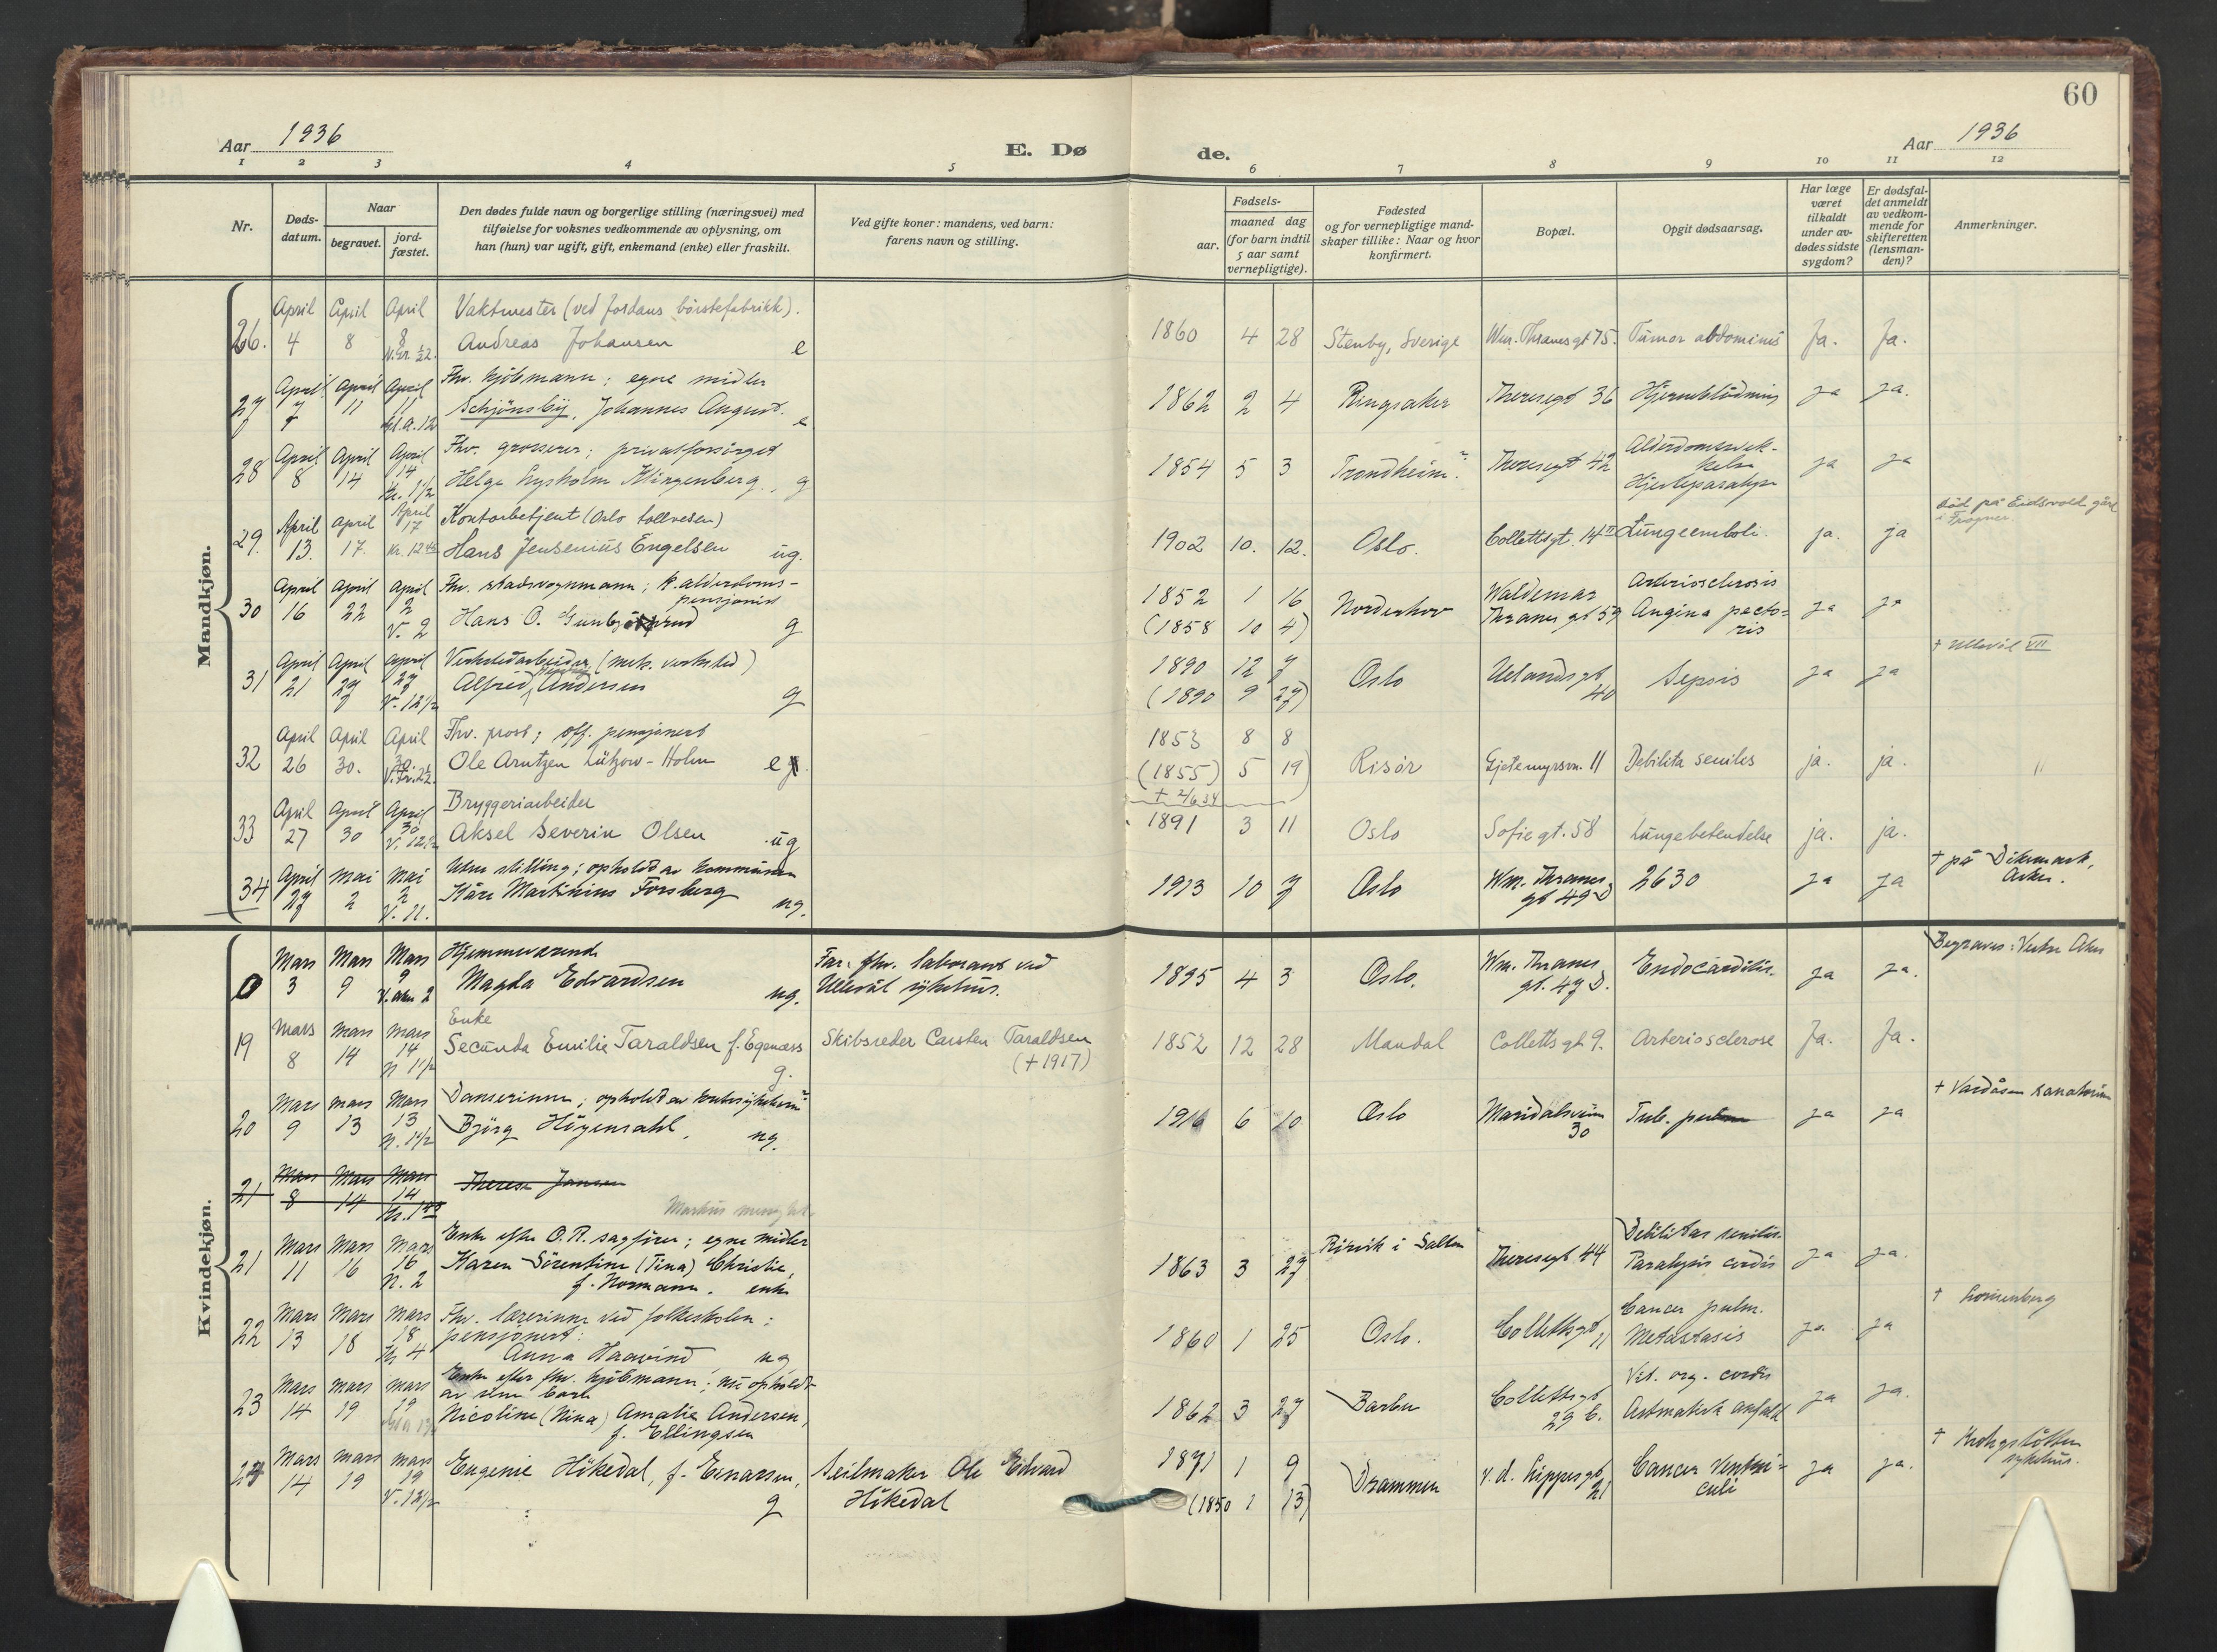 60
Aar 1936
E. Dø de.
Aar 1936
1 2 3 4 5 6 7 8 9 10 11 12
Nr.
Døds-datum.
Naar
begravet.
jord-fæstet.
Den dødes fulde navn og borgerlige stilling (næringsvei) med
tilføielse for voksnes vedkommende av oplysning, om
han (hun) var ugift, gift, enkemand (enke) eller fraskilt.
Ved gifte koner: mandens, ved barn:
farens navn og stilling.
Fødsels-
aar.
maaned dag
(for barn indtil
5 aar samt
vernepligtige).
Fødested
og for vernepligtige mand-
skaper tillike: Naar og hvor
konfirmert.
Bopæl.
Opgit dødsaarsag.
Har læge
været
tilkaldt
under av-
dødes sidste
sygdom?
Er dødsfal-
det anmeldt
av vedkom-
mende for
skifteretten
(lensman-
den)?
Anmerkninger.
Mandkjøn.
April April April Vaktmester (ved Jordans børstefabrikk).
26. 4 8 8 Andreas Johansen e 1860 4 28 Stenby, Sverige Wm. Thranesgt 75. Tumor abdominis Ja. Ja.
April April April Fhv. kjøbmann; egne midler
27 7 11 11 Schjønsby, Johannes August. e 1862 2 4 Ringsaker Theresegt 36 Hjerneblødning ja ja.
April April April Fhv. grosserer; privatforsørget
28 8 14 14 Helge Lysholm Klingenberg, g 1854 5 3 Trondheim Theresegt 42 Alderdomssvek-
kelse
Hjerteparalyse ja ja
April April April 17 Kontorbetjent (Oslo tollvesen)
29. 13. 17. Kr. 12 Hans Jensenius Engelsen ug. 1902 10. 12. Oslo. Collettsgt. 14 II Lungeemboli. ja. ja
død på Eidsvold gård
i Frogner.
April April April Fhv. stadsvognmann; k. alderdoms-
pensjonist
30 16 22 2 V. 2 Hans O. g 1852 1 16
(1858 10 4) Norderhov Waldemar
Thranes gt 59 Arteriosclerosis
Angina pecto-
ris ja ja
April April April Verkstedarbeider (mek. verksted)
31 21 27 27 V. 12½ Alfred Andersen g 1890 12 7
(1890 9 27) Oslo Uelandsgt
40 Sepsis ja ja
† Ullevål VII
April April April Fhv. prost; off. pensjonert
32 26 30. 30. Ole Arntzen Lützow-Holm e 1853 8 8
(1855) 5 19
† 2/6 34 Risør Gjetemyrsvn. 11 Debilitas seniles ja. ja. "
April April April Bryggeriarbeider
33 27 30 30 Aksel Severin Olsen ug 1891 3 11 Oslo Sofiegt. 58 Lungebetendelse ja. ja.
April mai mai Uten stilling; opholdt av kommunen
34 27 2 2 V. 11. Kåre Martinius Forsberg ug. 1913 10 7 Oslo Wm. Thranes
gt 49 D 2630 ja ja
† på Dikemark,
Asker.
Kvindekjøn.
Mars Mars Mars Hjemmeværende
0 3 9 9 Magda Edvardsen ug. Far: fhv. laborant ved
Ullevål sykehus. 1895 4 3 Oslo. Wm. Thranes
gt. 47 D. Endocarditis. ja ja.
Begraves: Vestre Aker
mars mars mars Enke
19 8 14 14 N 1½ Secunda Emilie Taraldsen f. Egenæss g. Skibsreder Carsten Taraldsen
(† 1917) 1852 12 28 Mandal Colletts gt 9. Arteriosclerose Ja. Ja.
Mars mars Mars Danserinne;
20 9 13 13 N. 1½ Bjørg ug. 1916 6 10 Oslo Maridalsveien
30 Tub. pulm ja ja
† Vardåsen sanatorium
Mars Mars Mars
21 8 14 14 Therese Jansen
Markus menighet
Mars Mars Mars Enke efter O.R. sagfører; egne midler
21 11 16 16 N. 2 Karen Sørentine (Tina) Christie,
f. Normann. enke 1863 3 27 Theresegt 44 Debilitas senilis.
Paralysis cordis ja ja.
Mars Mars Mars Fhv. lærerinne ved folkeskolen;
22 13 18 18 Kr 4 pensjonert:
Anna Haavind ug 1860 1 25 Oslo. Collettsgt
11 Cancer pulm.
Metastasis ja. ja
† Lovisenberg
Mars mars mars Enke efter fhv. kjøbmann; nu opholdt
av sine barn
23 14 19 19 Nicoline (Nina) Amalie Andersen,
f. Ellingsen 1862 3 27 Barbu Collettsgt
29 b. Vit. org. cordis
Astmatisk anfald ja ja.
Mars mars mars
24 14 19 19 V. 12½ Eugenie Hökedal, f. Einarsen, g Seilmaker Ole Edvard
Hökedal 1871 1 9
(1850 1 13) Drammen v. d. Lippesgt
21 Cancer ventri-
culi ja ja.
† Krohgstøtten
sykehus.